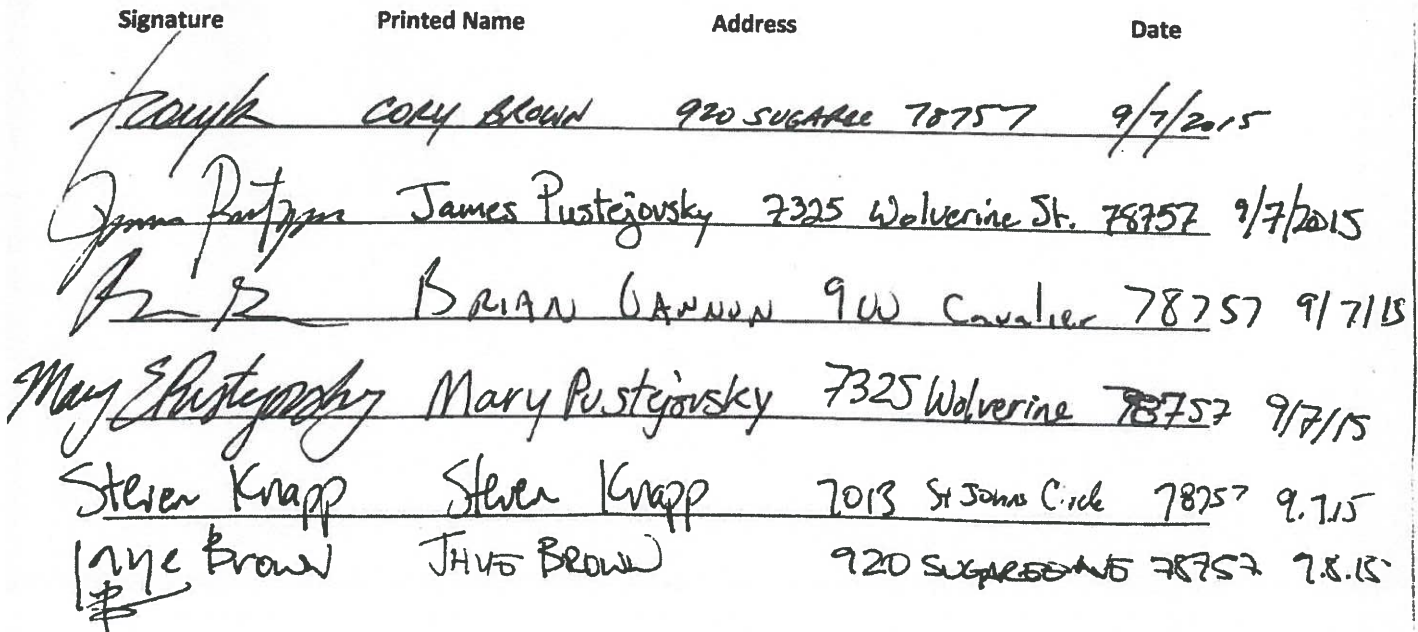 Signature Printed Name Address Date
CORY BROWN 920 SUGAREE 78757 9/7/2015
James Pustejovsky 7325 Wolverine St. 78757 9/7/2015
BRIAN CANNON 900 Cavalier 78757 9/7/15
Mary E Pustejovsky Mary Pustejovsky 7325 Wolverine 78757 9/7/15
Steven Knapp Steven Knapp 7013 St Johns Circle 78757 9.7.15
Brown BROWN 920 SUGAREE AVE 78757 9.8.15